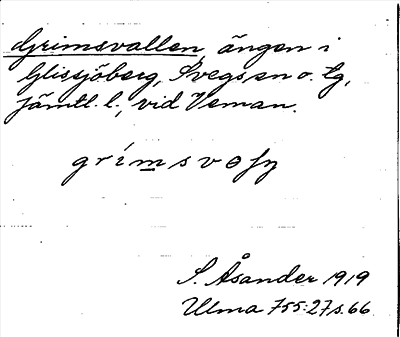 Grimsvallen, ängen i
Glissjöberg, Svegs sn o. tg,
Jämtl. l., vid Veman.
S. Åsander 1919
Ulma 755:27 s. 66